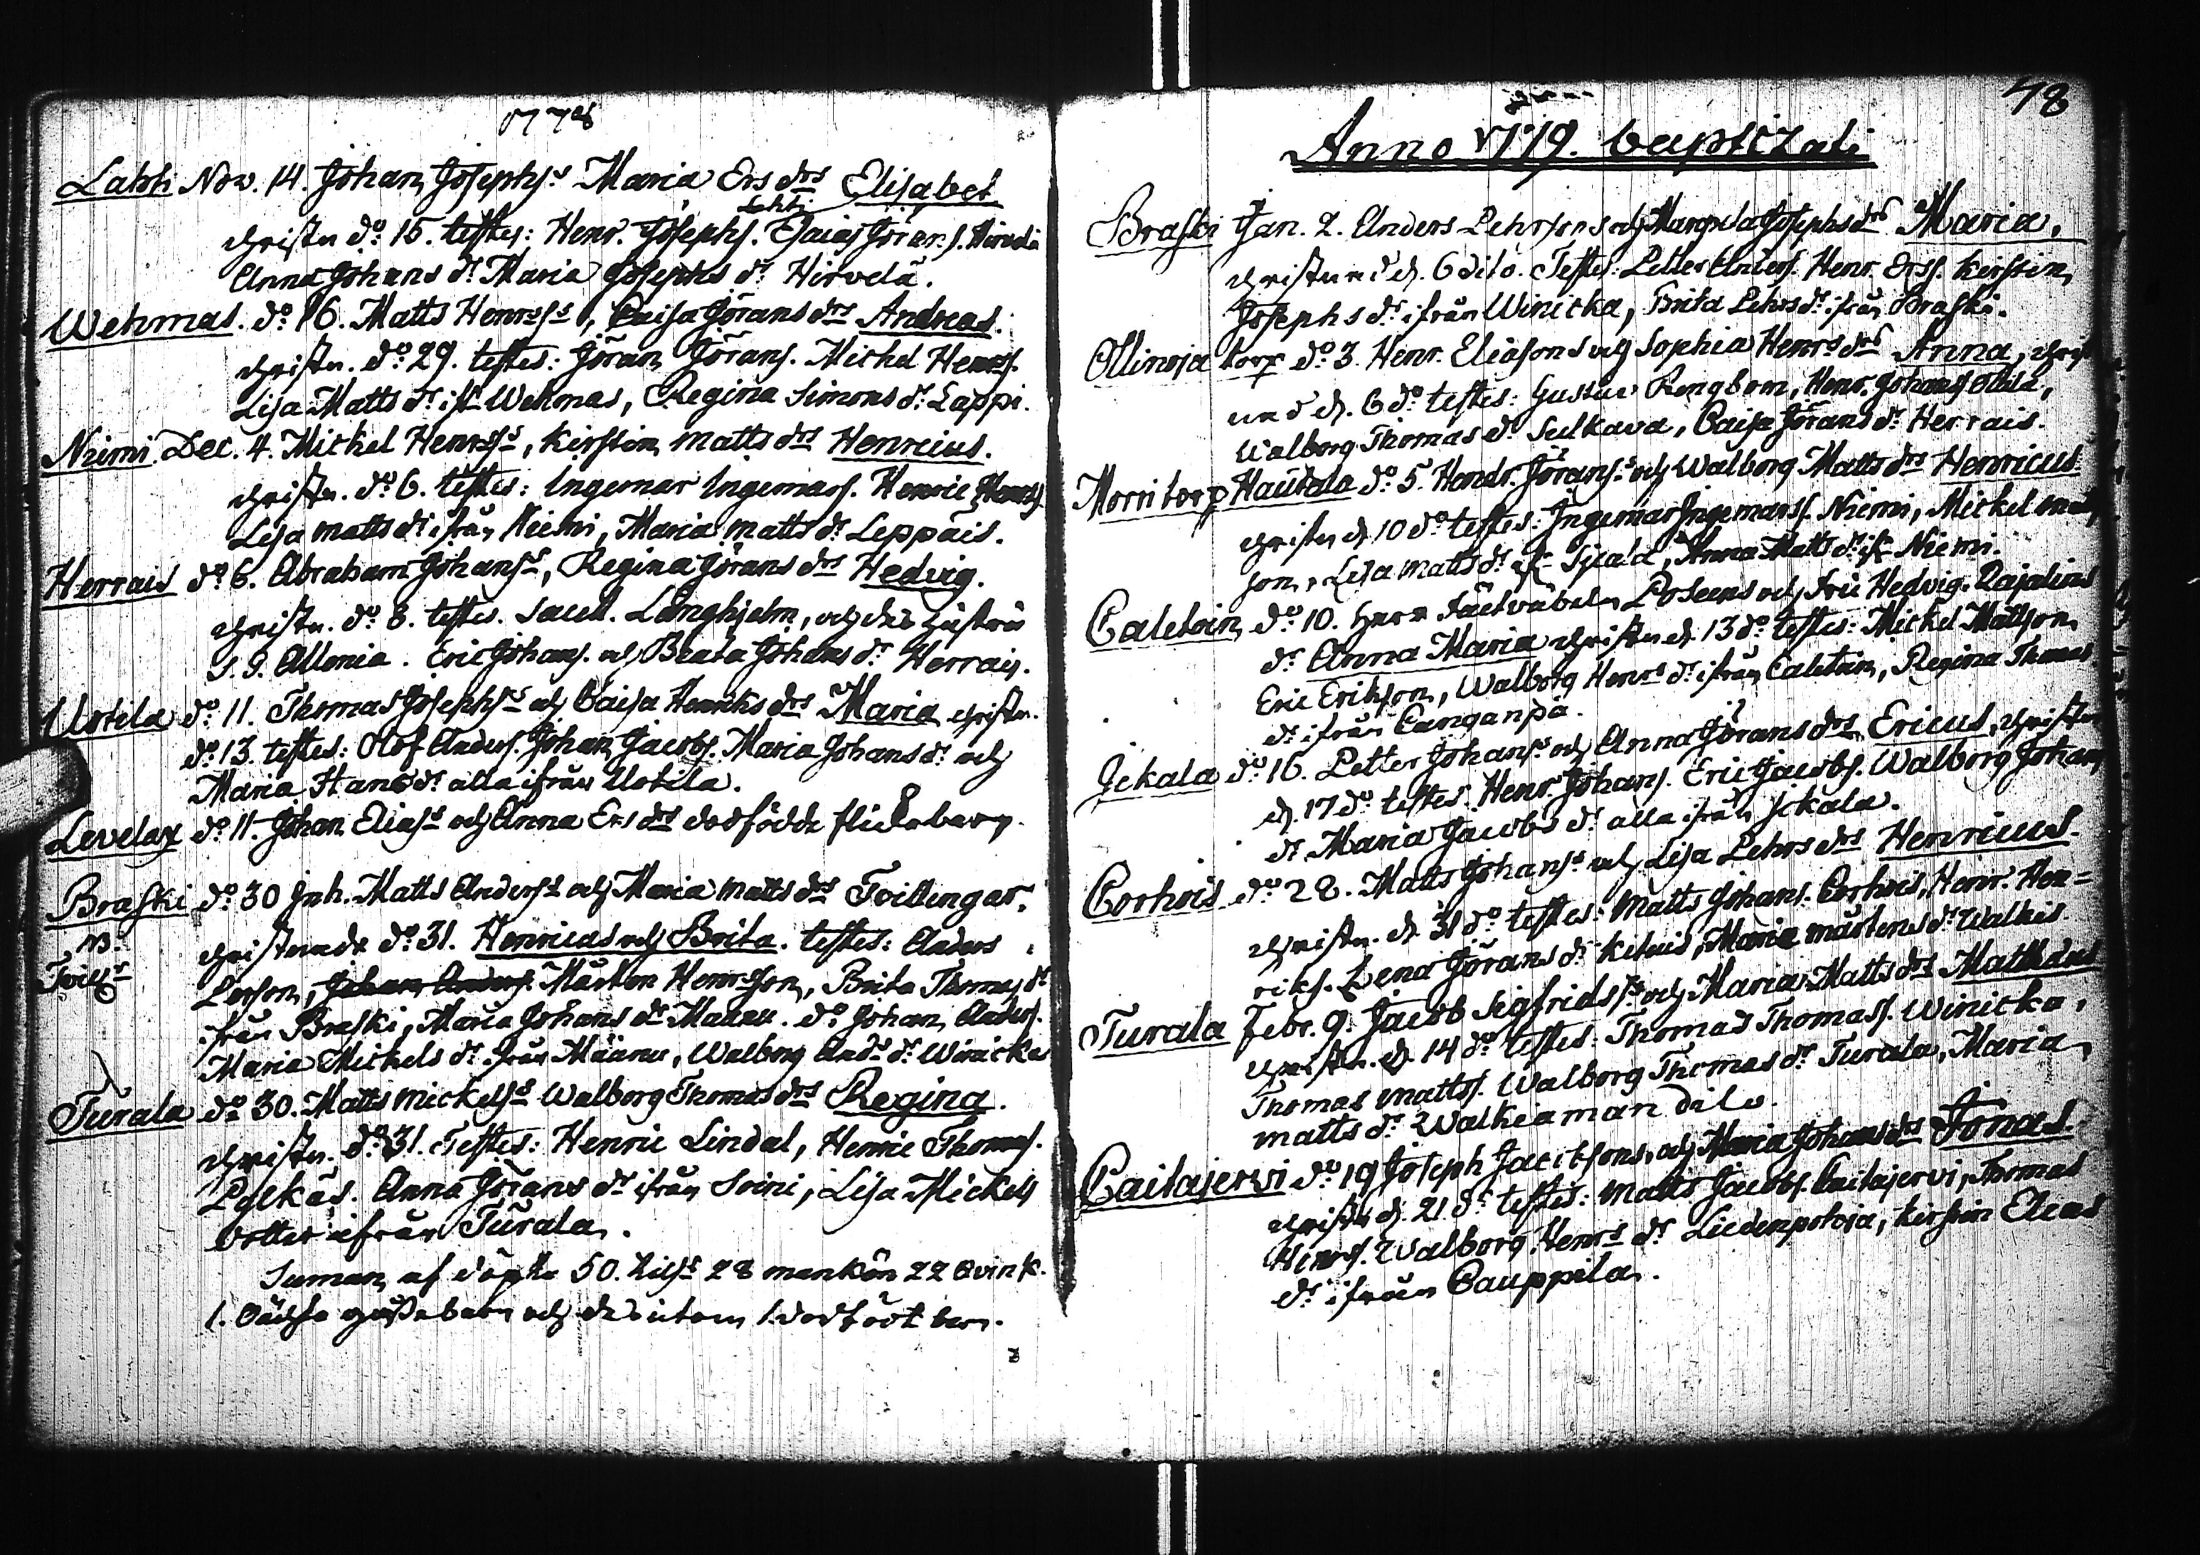 1778
Lahti Nov. 14. Johan Josephs:s Maria Ers drs Elisabet
Lahti
christn do 15. testes: Henr. Josephs. Esaias Görans. Hirvelä
Anna Johans dr Maria Josephs dr Hirvelä.
Wehmas. do 16. Matts Henrss:s, Caisa Görans drs Andreas.
christn. do 29. testes: Göran Görans. Michel Henrss.
Lisa Matts dr ifr Wehmas, Regina Simons dr Lappi.
Niemi. Dec. 4. Mickel Henrss:s, Kirstin Matts drs Henricus.
christn. do 6. testes: Ingemar Ingemars. Henric Henrss.
Lisa Matts dr ifrån Niemi, Maria Matts dr Leppäis.
Herrais do 6. Abraham Johans:s, Regina Görans drs Hedvig.
christn. do 8. testes. Långhjelm, och des hustru
S. G. Allenia. Eric Johans. och Beata Johans dr Herrais.
Uotela do 11. Thomas Josephs:s och Caisa Henriks drs Maria christn.
do 13. testes: Olof Anders. Johan Jacobs. Maria Johans dr och
Maria Hans dr alla ifrån Uotila.
Levelax do 11. Johan Elias:s och Anna Ers drs dödfödde flickebarn.
Braski do 30 Inh. Matts Anders:s och Maria Matts drs Tvillingar,
NB. christnade do 31. Henricus och Brita. testes: Anders
Larson, Johan Anders. Mårten Henrsson, Brita Thomas dr
ifrån Braski, Maria Johans dr Mäenu. do Johan Anders.
Maria Mickels dr ifrån Mäenu, Walborg Ands dr Winicka
Turala do 30. Matts Mickels:s Walborg Thomas drs Regina.
christn. do 31. Testes: Henric Lindal, Henric Thomas.
Pylkäs. Anna Görans dr ifrån Soini, Lisa Mickels
dotter ifrån Turala.
Suman af döpta 50. 28 mankön 22 qvink.
1. oächta gåssebarn och des utom 1. dödfödt barn.
48
Anno 1779. baptizati
Braski Jan. 2. Anders Lehrsons och Margeta Josephs drs Maria,
christnad d. 6 dito. Testes: Petter Anders. Henr. Erss. Kirstin
Josephs dr ifrån Winicka, Brita Lehrs dr ifrån Braski.
Ollinoja torp do 3. Henr. Eliasons och Sophia Henrs drs Anna, christ
nad d. 6 do testes: Gustav Rengbom, Henr. Johans Ollila,
Walborg Thomas dr Sulkava, Caisa Görans dr Herrais.
Morritorp Hautala do 5. Hendr. Görans:s och Walborg Matts drs Henricus
christn d. 10 do testes: Ingemar Ingemarss. Niemi, Mickel Matt
son, Lisa Matts dr ifr Anna Matts dr ifr Niemi.
Caletoin do 10. Herr Fältväbeln Poleens och fru Hedvig Cajalins
dr Anna Maria christn d. 13 do testes: Mickel Mattson
Eric Erikson, Walborg Henrs dr ifrån Caletoin, Regina Thomas
dr ifrån Canganpä.
Jckala do 16. Petter Johans:s och Anna Görans drs Ericus, christn
d. 17 do testes. Henr. Johans. Eric Jacobs. Walborg Johans
dr Maria Jacobs dr alla ifrån Jckala.
Corhois do 28. Matts Johans:s och Lisa Lehrs drs Henricus
christn. d. 31 do testes: Matts Johans. Corhois, Henr. Hen=
riks. Lena Görans dr Ketuis, Maria Mårtens dr Walkis
Turala Febr. 9. Jacob Sigfrids:s och Maria Matts drs Mathæus
christn. d. 14 do testes: Thomas Thomass. Winicka,
Thomas Mattss. Walborg Thomas dr Turala, Maria
Matts dr Walkeaman dito.
Caitajervi do 19 Joseph Jacobsons och Maria Johans drs Jonas
christn d. 21. do testes: Matts Jacobs. Caitajervi, Thomas
Henrs. Walborg Henrs dr Liedenpohja, Kirstin Elias
dr ifrån Cauppila.